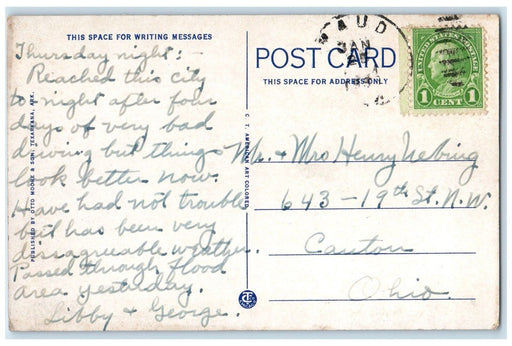 THIS SPACE FOR WRITING MESSAGES
Thursday night; -
Reached this city
to-night after four
days of very bad
driving but things
look better now.
Have had not trouble
but has been very
dissagreeable weather.
Passed through flood
area yesterday.
Libby & George.
PUBLISHED BY OTTO MOORE & SON, TEXARKANA, ARK.
C. T. AMERICAN ART COLORED
POST CARD
THIS SPACE FOR ADDRESS ONLY
MAUD
JAN
UNITED STATES POSTAGE
1 1
CENT
Mr. & Mrs Henry Nebing
643-19th St. N.W.
Canton
Ohio.